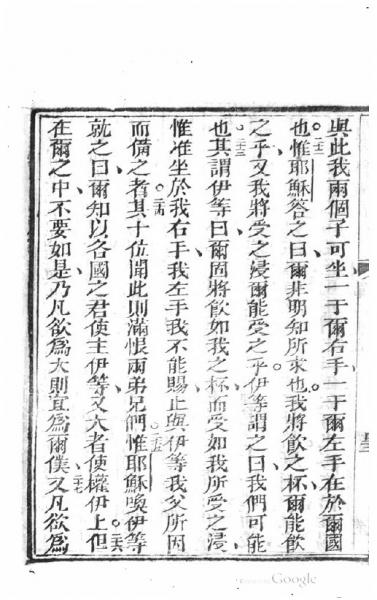 與此我兩個子可坐一于爾右手一于爾左手在於爾國
也。二二惟耶穌答之曰、爾非明知所求也。我將飲之杯、爾能飲
之乎。又我將受之浸爾能受之乎。伊等謂之曰、我們可能
也。二三其謂伊等曰、爾固將飲如我之杯、而受如我所受之浸、
惟准坐於我右手我左手我不能賜、止與伊等我父所因
而備之者。二四其十位聞此則滿恨兩弟兄們。二五惟耶穌喚伊等
就之曰、爾知以各國之君使主伊等、又大者使權伊上。二六但
在爾之中不要如是、乃凡欲為大則宜為爾僕。二七又凡欲為
Google